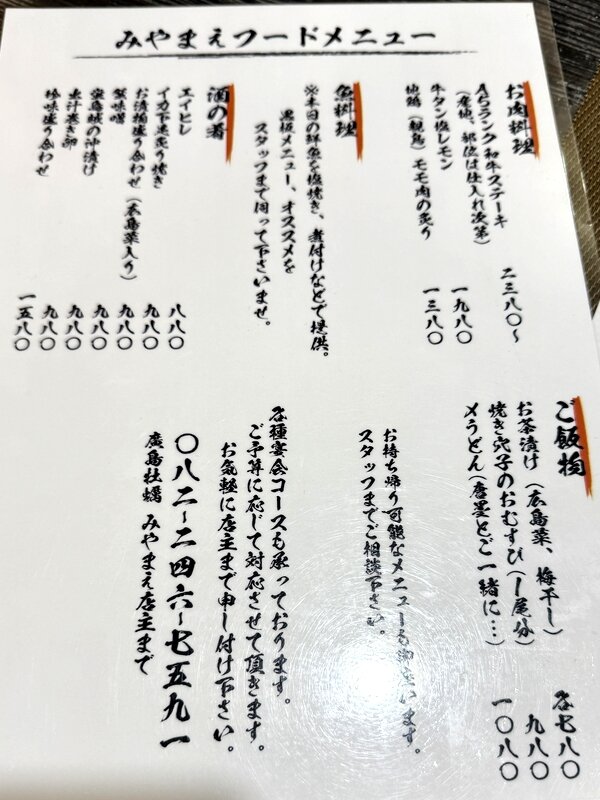 みやまえフードメニュー
お肉料理
A5ランク和牛ステーキ 二三八〇～
(産地、部位は仕入れ次第)
牛タン塩レモン 一九八〇
地鶏(親鳥)モモ肉の炙り 一三八〇
魚料理
※本日の鮮魚を塩焼き、煮付けなどで提供。
黒板メニュー、オススメを
スタッフまで伺って下さいませ。
酒の肴
エイヒレ 八八〇
イカ下足炙り焼き 九八〇
お漬物盛り合わせ(広島菜入り) 九八〇
蟹味噌 九八〇
宝島賊の沖漬け 九八〇
出汁巻き卵 九八〇
珍味盛り合わせ 一五八〇
ご飯物
お茶漬け(広島菜、梅干し) 各七八〇
焼き穴子のおむすび(一尾分) 九八〇
〆うどん(唐墨とご一緒に…) 一〇八〇
お持ち帰り可能なメニューも御座います。
スタッフまでご相談下さい。
各種宴会コースも承っております。
ご予算に応じて対応させて頂きます。
お気軽に店主まで申し付け下さい。
〇八二～二四六～七五九一
廣島牡蠣 みやまえ店主まで